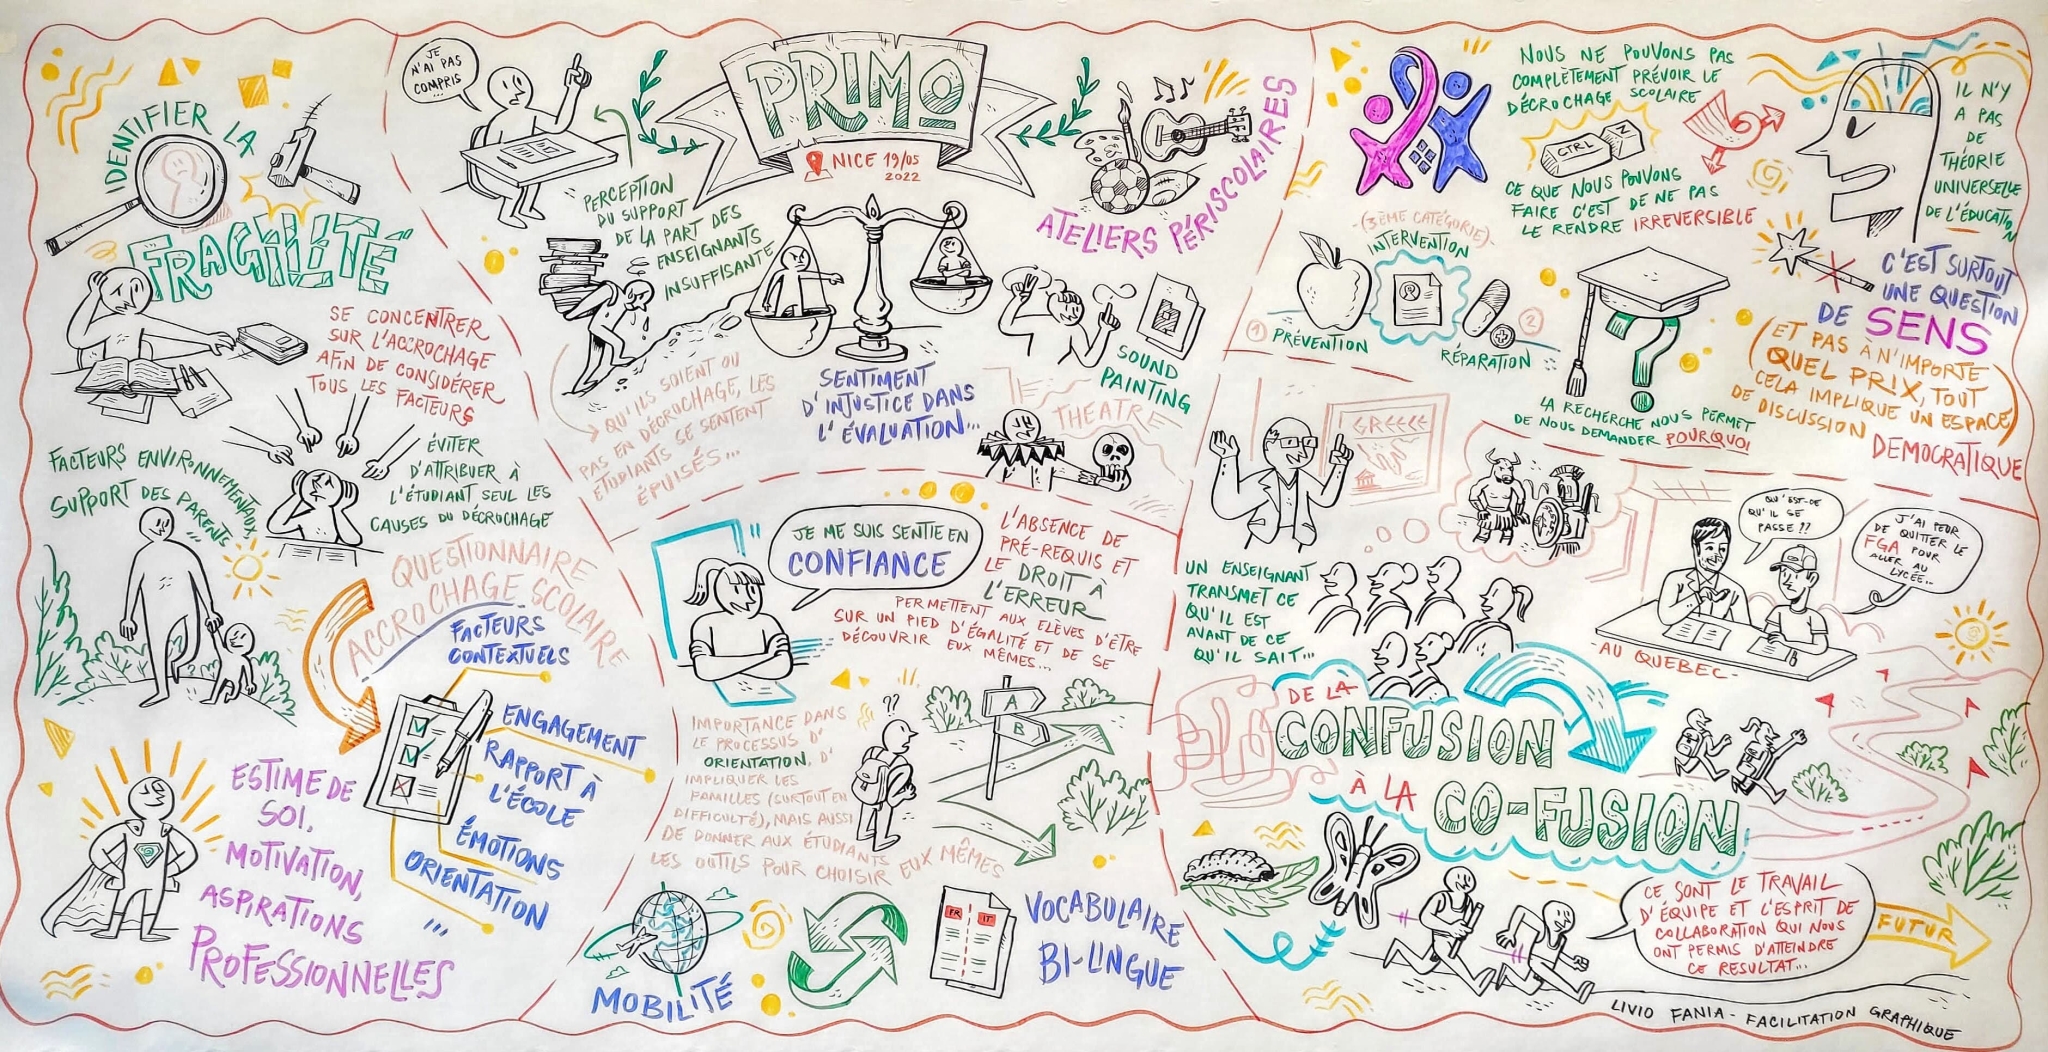 IDENTIFIER LA
FRAGILITÉ
SE CONCENTRER
SUR L'ACCROCHAGE
AFIN DE CONSIDÉRER
TOUS LES FACTEURS
FACTEURS ENVIRONNEMENTAUX
SUPPORT DES PARENTS
...
ÉVITER
D'ATTRIBUER À
L'ÉTUDIANT SEUL LES
CAUSES DU DÉCROCHAGE
QUESTIONNAIRE
ACCROCHAGE SCOLAIRE
FACTEURS
CONTEXTUELS
ENGAGEMENT
RAPPORT À
L'ÉCOLE
ÉMOTIONS
ORIENTATION
...
ESTIME DE
SOI,
MOTIVATION,
ASPIRATIONS
PROFESSIONNELLES
JE
N'AI PAS
COMPRIS
...
PRIMO
NICE 19/05
2022
PERCEPTION
DU SUPPORT
DE LA PART DES
ENSEIGNANTS
INSUFFISANTE
QU'ILS SOIENT OU
PAS EN DÉCROCHAGE, LES
ÉTUDIANTS SE SENTENT
ÉPUISÉS...
SENTIMENT
D'INJUSTICE DANS
L'ÉVALUATION...
ATELIERS PÉRISCOLAIRES
SOUND
PAINTING
THEATRE
JE ME SUIS SENTIE EN
CONFIANCE
L'ABSENCE DE
PRÉ-REQUIS ET
LE DROIT À
L'ERREUR
PERMETTENT AUX ELÈVES D'ÊTRE
SUR UN PIED D'ÉGALITÉ ET DE SE
DÉCOUVRIR EUX MÊMES...
IMPORTANCE DANS
LE PROCESSUS D'
ORIENTATION, D'
IMPLIQUER LES
FAMILLES (SURTOUT EN
DIFFICULTÉ), MAIS AUSSI
DE DONNER AUX ÉTUDIANTS
LES OUTILS POUR CHOISIR EUX MÊMES
??
A
B
MOBILITÉ
FR
IT
VOCABULAIRE
BI-LINGUE
NOUS NE POUVONS PAS
COMPLÈTEMENT PRÉVOIR LE
DÉCROCHAGE SCOLAIRE
CTRL
Z
CE QUE NOUS POUVONS
FAIRE C'EST DE NE PAS
LE RENDRE IRREVERSIBLE
-(3ÈME CATÉGORIE)-
INTERVENTION
1 PRÉVENTION
2
RÉPARATION
LA RECHERCHE NOUS PERMET
DE NOUS DEMANDER POURQUOI
IL N'Y
A PAS
DE
THÉORIE
UNIVERSELLE
DE L'ÉDUCATION
C'EST SURTOUT
UNE QUESTION
DE SENS
(ET PAS À N'IMPORTE
QUEL PRIX, TOUT
CELA IMPLIQUE UN ESPACE)
DE DISCUSSION
DEMOCRATIQUE
GREECE
UN ENSEIGNANT
TRANSMET CE
QU'IL EST
AVANT DE CE
QU'IL SAIT...
QU'EST-CE
QU'IL SE
PASSE ??
J'AI PEUR
DE QUITTER LE
FGA POUR
ALLER AU
LYCÉE...
-AU QUEBEC-
DE LA
CONFUSION
À LA
CO-FUSION
CE SONT LE TRAVAIL
D'ÉQUIPE ET L'ESPRIT DE
COLLABORATION QUI NOUS
ONT PERMIS D'ATTEINDRE
CE RESULTAT...
FUTUR
LIVIO FANIA - FACILITATION GRAPHIQUE